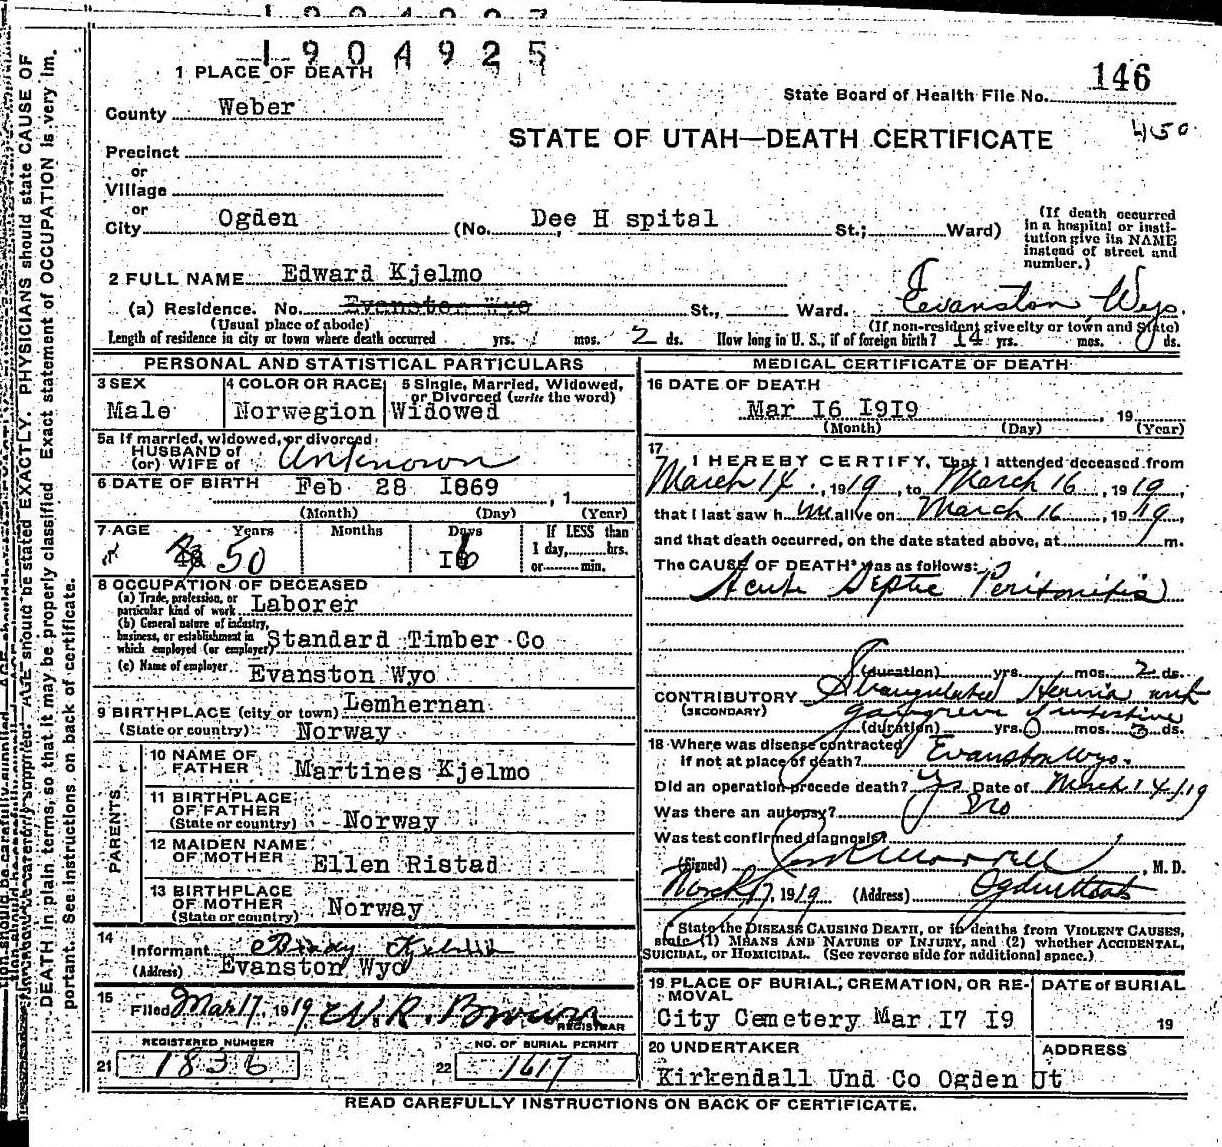 1904925
146
State Board of Health File No.
450
STATE OF UTAH—DEATH CERTIFICATE
1 PLACE OF DEATH
County Weber
Precinct
or
Village
or
City Ogden (No. Dee H spital St.; Ward)
(If death occurred in a hospital or institution give its NAME instead of street and number.)
2 FULL NAME Edward Kjelmo
(a) Residence. No. Evanston Wyo St., Ward. Evanston Wyo.
(Usual place of abode) (If non-resident give city or town and State)
Length of residence in city or town where death occurred yrs. mos. 2 ds. How long in U. S., if of foreign birth? 14 yrs. mos. ds.
PERSONAL AND STATISTICAL PARTICULARS
3 SEX
Male
4 COLOR OR RACE
Norwegion
5 Single, Married, Widowed, or Divorced (write the word)
Widowed
5a If married, widowed, or divorced
HUSBAND of
(or) WIFE of Unknown
6 DATE OF BIRTH Feb 28 I869 , 1
(Month) (Day) (Year)
7 AGE Years Months Days
50 I6
If LESS than
1 day, hrs.
or min.
8 OCCUPATION OF DECEASED
(a) Trade, profession, or particular kind of work Laborer
(b) General nature of industry, business, or establishment in which employed (or employer) Standard Timber Co
(c) Name of employer Evanston Wyo
9 BIRTHPLACE (city or town) Lemhernan
(State or country) Norway
PARENTS
10 NAME OF FATHER Martines Kjelmo
11 BIRTHPLACE OF FATHER (State or country) Norway
12 MAIDEN NAME OF MOTHER Ellen Ristad
13 BIRTHPLACE OF MOTHER (State or country) Norway
14
Informant
(Address) Evanston Wyo
15
Filed Mar 17, 1919 W. R. Brown
REGISTRAR
REGISTERED NUMBER
21 1836
NO. OF BURIAL PERMIT
22 1617
MEDICAL CERTIFICATE OF DEATH
16 DATE OF DEATH
Mar I6 I9I9 , 19
(Month) (Day) (Year)
17
I HEREBY CERTIFY, That I attended deceased from
March 14, 1919, to March 16, 1919,
that I last saw him alive on March 16, 1919,
and that death occurred, on the date stated above, at m.
The CAUSE OF DEATH* was as follows:
Acute Septic Peritonitis
(duration) yrs. mos. 2 ds.
CONTRIBUTORY Strangulated Hernia with
(SECONDARY) gangrene Intestine
(duration) yrs. 0 mos. 3 ds.
18 Where was disease contracted
if not at place of death? Evanston Wyo.
Did an operation precede death? Yes Date of March 14/19
Was there an autopsy? No
Was test confirmed diagnosis?
(Signed) , M. D.
March 17, 1919 (Address) Ogden Utah
State the DISEASE CAUSING DEATH, or in deaths from VIOLENT CAUSES,
state (1) MEANS AND NATURE OF INJURY, and (2) whether ACCIDENTAL,
SUICIDAL, or HOMICIDAL. (See reverse side for additional space.)
19 PLACE OF BURIAL, CREMATION, OR REMOVAL
City Cemetery Mar I7 I9
DATE of BURIAL
19
20 UNDERTAKER
Kirkendall Und Co Ogden Ut
ADDRESS
READ CAREFULLY INSTRUCTIONS ON BACK OF CERTIFICATE.
should be stated EXACTLY. PHYSICIANS should state CAUSE OF
DEATH in plain terms, so that it may be properly classified. Exact statement of OCCUPATION is very im-
portant. See instructions on back of certificate.